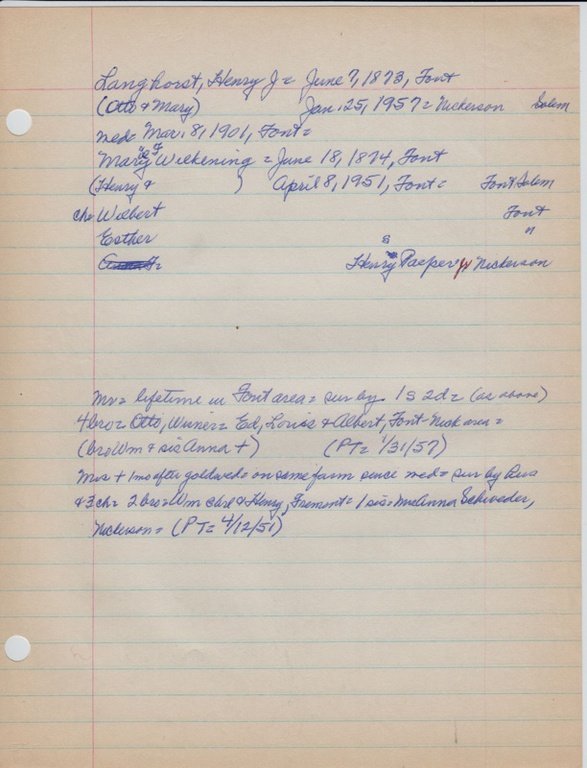 Langhorst, Henry J = June 7, 1873, Font
(Otto & Mary) Jan. 25, 1957 = Nickerson Salem
wed = Mar. 8, 1901, Font =
Mary Wilkening = June 18, 1874, Font
(Henry & ) April 8, 1951, Font = Font Salem
ch = Wilbert Font
Esther "
Henry Paeper Jr Nickerson
Mr = lifetime in Font area = sur by 1s 2d = (as above)
4 bro = Otto, Winner = Ed, Louis & Albert, Font-Nick area =
(bro Wm & sis Anna +) (PT = 1/31/57)
Mrs + 1 mo after goldwed = on same farm since wed = sur by
& 3 ch = 2 bro = Wm & Henry, Fremont = 1 sis = Mrs Anna Schweder,
Nickerson = (PT = 4/12/51)